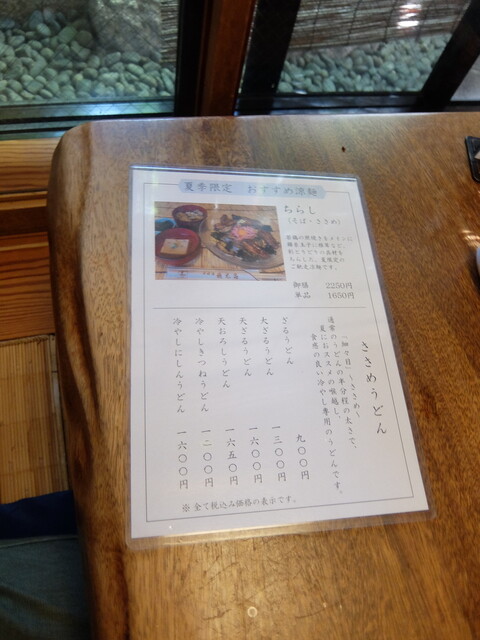 夏季限定 おすすめ涼麺
ちらし
(そば・ささめ)
ちらした、夏限定の
ご馳走涼麺です。
御膳 2250円
単品 1650円
ささめうどん
「細々目」～ささめ～
通常のうどんの半分程の太さで、
夏におススメの喉越し、
食感の良い冷やし専用のうどんです。
ざるうどん 九〇〇円
大ざるうどん 一三〇〇円
天ざるうどん 一六〇〇円
天おろしうどん 一六五〇円
冷やしきつねうどん 一二〇〇円
冷やしにしんうどん 一六〇〇円
※全て税込み価格の表示です。